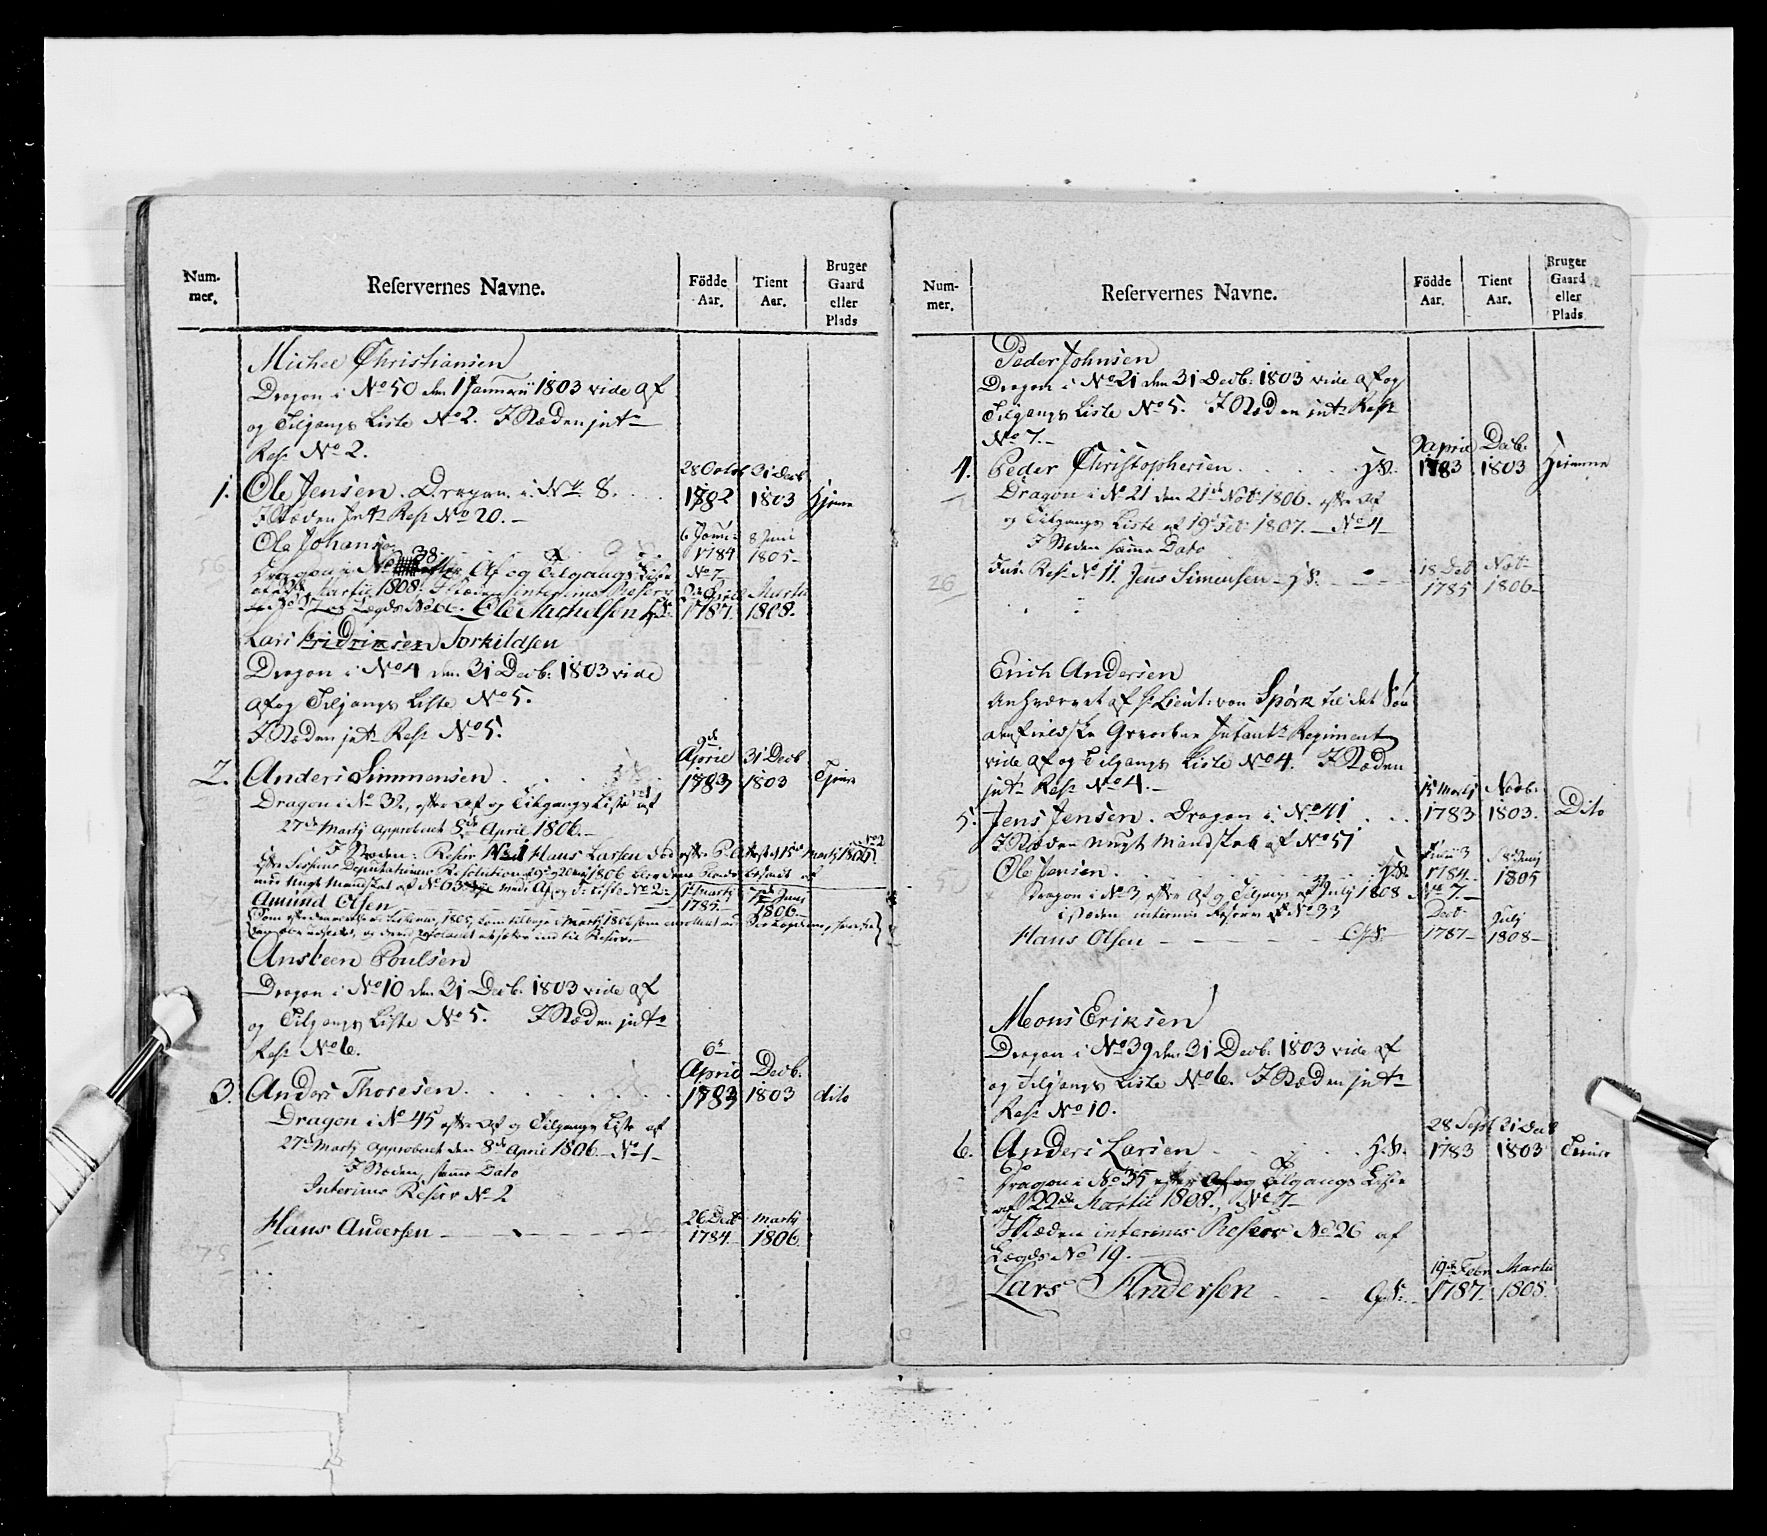 Num-
mer.
Reservernes Navne.
Födde
Aar.
Tient
Aar.
Bruger
Gaard
eller
Plads
Michel Christiansen
Dragon i No 50 den 1 Januarii 1803 vide Af
og Tilgangs Liste No 2. I Stæden int
Res: No 2.
1. Ole Jensen. Dragon i No 8. 28 Octob 1782 31 Decb 1803 Hjeme
I Stæden Int: Res: No 20.
Ole Johansen 6 Janu: 1784 8 Juni 1805
Dragon i No 38 efter Af og Tilgangs Liste No 7
Martii 1808. I Stæden interims Reserv
Ole Michelsen April 1787. Martii 1808.
Lars Fridrixsen Torkildsen
Dragon i No 4 den 31 Decb: 1803 vide
Af og Tilgangs Liste No 5.
I Stæden int Res: No 5.
2. Anders Simmensen 9de April 1783 31 Decb 1803 Tjener
Dragon i No 32, efter Af og Tilgangs Liste af
27de Martj Approberet 8de April 1806.
I Stæden: Reserv No 1 Hans Larsen død
Amund Olsen Martj 1785. Juni 1806
Ansteen Poulsen
Dragon i No 10 den 31 Decb. 1803 vide Af
og Tilgangs Liste No 5. I Stæden int
Res: No 6.
3. Anders Thoresen 6te April 1783 Decb. 1803 dito
Dragon i No 45 efter Af og Tilgangs Liste af
27de Martj Approberet den 8de April 1806 No 1
I Stæden, samme Dato
Interims Reserv No 2
Hans Andersen 26 Decb 1784 Martj 1806
Num-
mer.
Reservernes Navne.
Födde
Aar.
Tient
Aar.
Bruger
Gaard
eller
Plads
Peder Johnsen
Dragon i No 21 den 31 Decb: 1803 vide Af og
Tilgangs Liste No 5. I Stæden int Res:
No 7.
4. Peder Christophersen April 1783 Decb. 1803 Hjemme
Dragon i No 21 den 21de Novb 1806. efter Af
og Tilgangs Liste af 19de Feb: 1807. No 4
I Stæden samme Dato
Int. Res: No 11. Jens Simensen 18 Decb 1785 Novb 1806
26
Erich Andersen
Anhværvet af Pr: Lieut: von Spörk til det
denfieldske Gevorbne Infant: Regiment
vide Af og Tilgangs Liste No 4. I Stæden
int Res: No 4.
5. Jens Jensen. Dragon i No 41 15 Martj 1783 Novb. 1803. Dito
I Stæden nugt Mandskab af No 51
Ole Jensen 1784 1805
Dragon i No 3 efter Af og Tilgangs af Julj 1808 No 7
i Stæden interims Reserv No 33
Hans Olsen Decb 1787 Julj 1808
Mons Eriksen
Dragon i No 39 den 31 Decb: 1803 vide Af
og Tilgangs Liste No 6. I Stæden int
Res: No 10.
6. Anders Larsen 28 Sept 1783 31 Decb 1803 Tiener
Dragon i No 35 efter Af og Tilgangs Liste
af 22de Martii 1808. No 7
I Stæden interims Reserv No 26 af
Lægds No 19.
Lars Andersen 19de Febr 1787. Martii 1808.